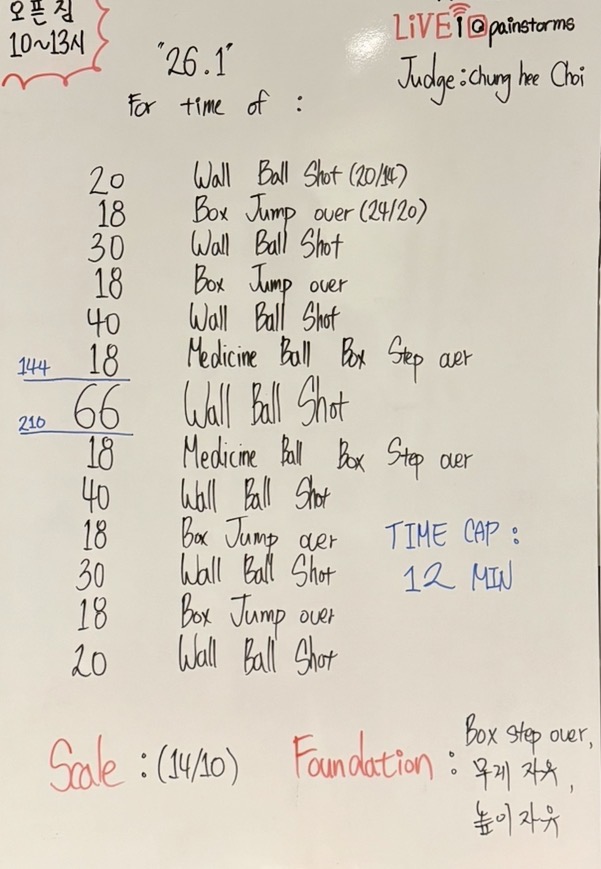 오픈 짐
10~13시
LiVE i@painstorms
Judge:chung hee Choi
"26.1"
For time of :
20 Wall Ball Shot (20/14)
18 Box Jump over (24/20)
30 Wall Ball Shot
18 Box Jump over
40 Wall Ball Shot
144 18 Medicine Ball Box Step over
66 Wall Ball Shot
210
18 Medicine Ball Box Step over
40 Wall Ball Shot
18 Box Jump over
30 Wall Ball Shot
18 Box Jump over
20 Wall Ball Shot
TIME CAP :
12 MIN
Scale : (14/10)
Foundation : Box step over,
무게 자유,
높이 자유